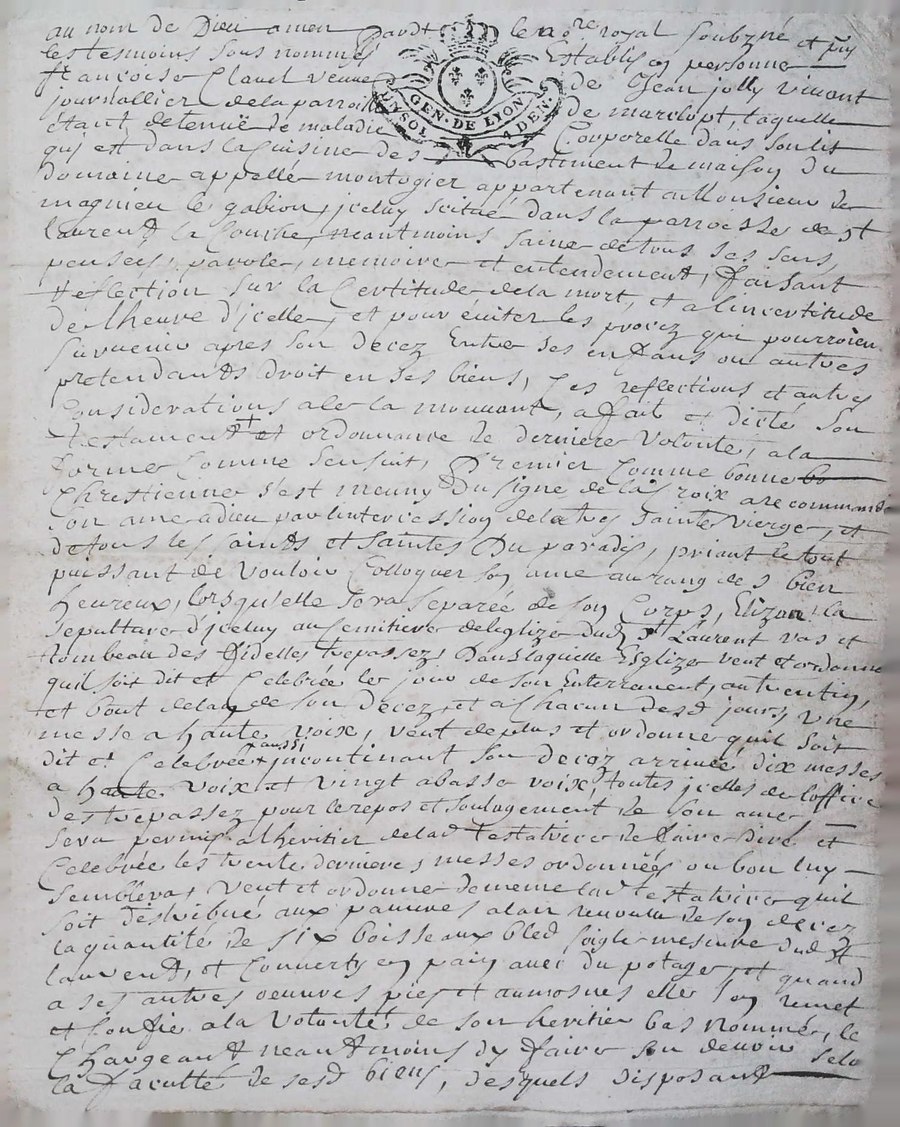 au nom de Dieu amen Pardt le nore royal soubzné et puis
les tesmoins sous nommés Establis en personne
françoise Claud veuue de Jean jolly viuant
journallier de la parroisse de marclopt, laquelle
étant detenuë de maladie Corporelle dans son lit
qui est dans la Cuisine des bastiment de maison du
GEN. DE LYON
UN SOL 4 DEN.
domaine appellé montogier appartenant a Monsieur de
magnieu le gabion, jceluy scitué dans la parroisse de st
laurent la Conche, neantmoins saine de tous ses sens,
pensées, parole, memoire et entendement, faisant
reflection sur la Certitude de la mort, et a lincertitude
de lheure d'jcelle, et pour éuiter les procez qui pourroien
suruenir apres son decez Entre ses enfans ou autres
pretendants droit en ses biens, Ces reflections et autres
Considerations a le la mouuant, a fait et dicté son
testament et ordonnance de derniere volonté, a la
forme Comme sensuit, Premier Comme bonne
Chrestienne s'est meuny du signe de la Croix a recommandé
son ame a dieu par lintercession de la tres sainte vierge, et
de tous les saints et saintes du paradis, priant le tout
puissant de vouloir Colloquer son ame au rang des bien
heureux, lorsquelle sera separée de son Corps, Elizan la
sepulture d'jceluy au semitiere de leglize dudt st Laurent vas et
tombeau des fidelles trepassez, dans laquelle Esglize veut et ordonne
quil soit dit et Celebrée le jour de son Enterrement, autrentin,
et bout de lan de son decez, et a Chacun desd jours, vne
messe a haute voix, veut de plus et ordonne quil soit
dit et Celebrée aussi jncontinant son decez arriué, dix messes
a haute voix et vingt a basse voix, toutes jcelles de loffice
des trepassez pour le repos et soulagement de son ame,
sera permis a lheritier de lad testatrice de faire dire et
Celebrée les trente dernieres messes ordonnées ou bon luy
semblera, veut et ordonne de meme lad testatrice quil
soit destribué aux pauures a lan reuoulu de son decez
la quantité de six boisseaux bled soigle mesure dud st
laurent, et Conuerty en pain auec du potage, et quand
a ses autres oeuures pies et aumosnes elle son remet
et Confie a la volonté de son heritier bas nommé, le
Chargeant neantmoins dy faire son deuoir selo
la faculté de sesd biens, desquels disposant